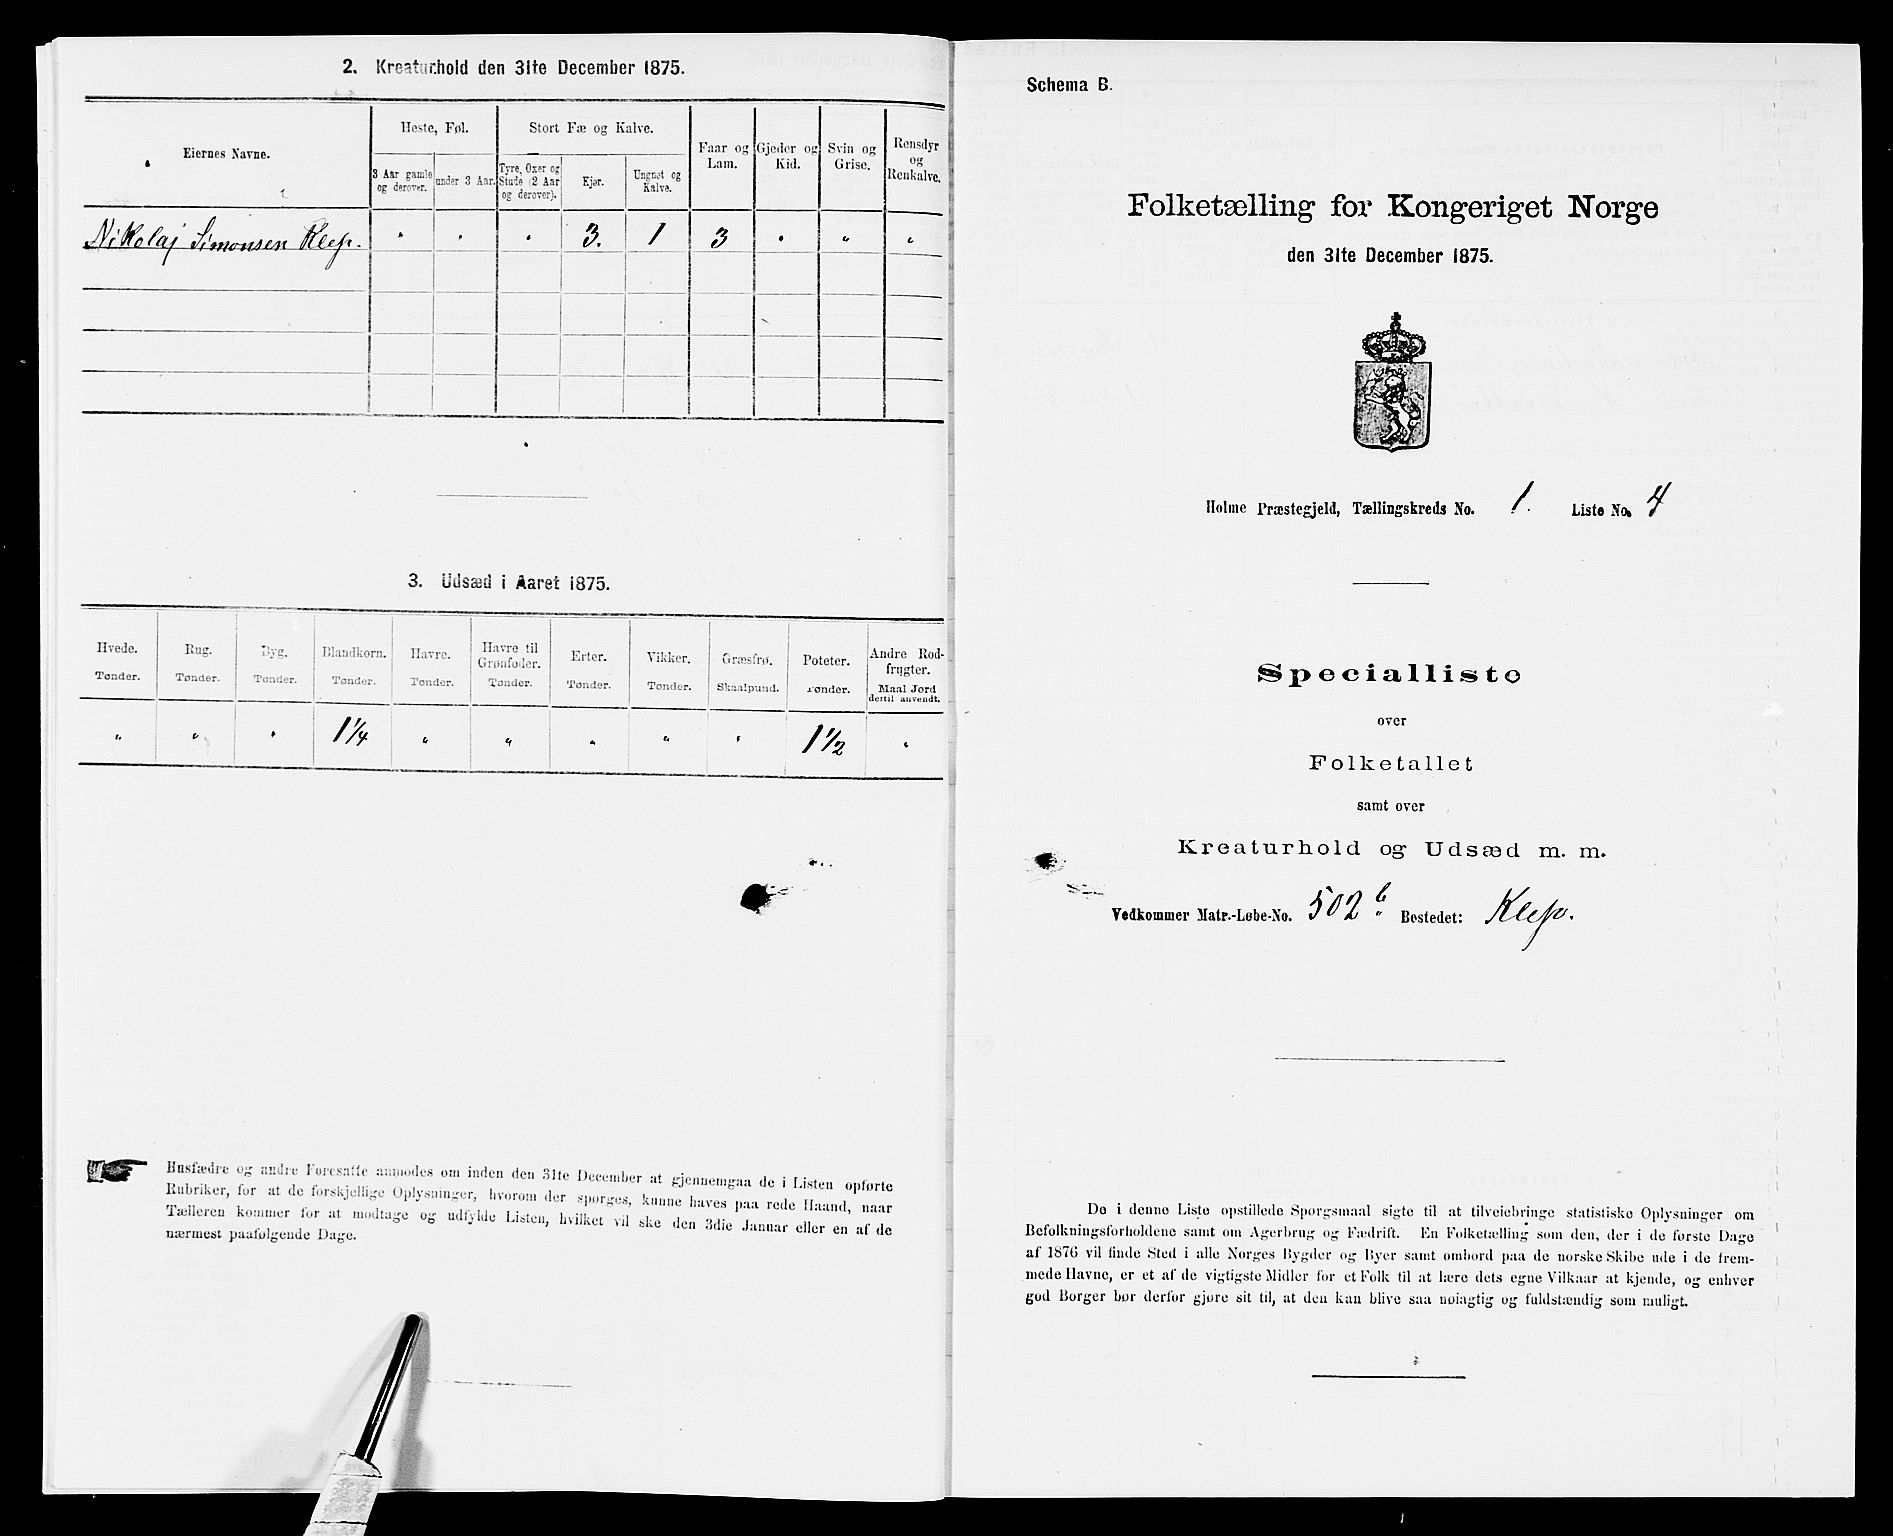 2. Kreaturhold den 31te December 1875.
Eiernes Navne.
Heste, Føl.
Stort Fæ og Kalve.
Faar og Lam.
Gjeder og Kid.
Svin og Grise.
Rensdyr og Renkalve.
3 Aar gamle og derover.
under 3 Aar.
Tyre, Oxer og Stude (2 Aar og derover).
Kjør.
Ungnøt og Kalve.
Nikolaj Simonsen Klep. " " " 3. 1 3 " " "
3. Udsæd i Aaret 1875.
Hvede. Rug. Byg. Blandkorn. Havre. Havre til Grønfoder. Erter. Vikker. Græsfrø. Poteter. Andre Rodfrugter.
Tønder. Tønder. Tønder. Tønder. Tønder. Tønder. Tønder. Tønder. Skaalpund. Tønder. Maal Jord dertil anvendt.
" " " 1 1/4 " " " " " 1 1/2 "
Husfædre og andre Foresatte anmodes om inden den 31te December at gjennemgaa de i Listen opførte
Rubriker, for at de forskjellige Oplysninger, hvorom der spørges, kunne haves paa rede Haand, naar
Tælleren kommer for at modtage og udfylde Listen, hvilket vil ske den 3die Januar eller en af de
nærmest paafølgende Dage.
Schema B.
Folketælling for Kongeriget Norge
den 31te December 1875.
Holme Præstegjeld, Tællingskreds No. 1. Liste No. 4
Specialliste
over
Folketallet
samt over
Kreaturhold og Udsæd m. m.
Vedkommer Matr.-Løbe-No. 502 b. Bostedet: Klep.
De i denne Liste opstillede Spørgsmaal sigte til at tilveiebringe statistiske Oplysninger om
Befolkningsforholdene samt om Agerbrug og Fædrift. En Folketælling som den, der i de første Dage
af 1876 vil finde Sted i alle Norges Bygder og Byer samt ombord paa de norske Skibe ude i de frem-
mede Havne, er et af de vigtigste Midler for et Folk til at lære dets egne Vilkaar at kjende, og enhver
god Borger bør derfor gjøre sit til, at den kan blive saa nøiagtig og fuldstændig som muligt.